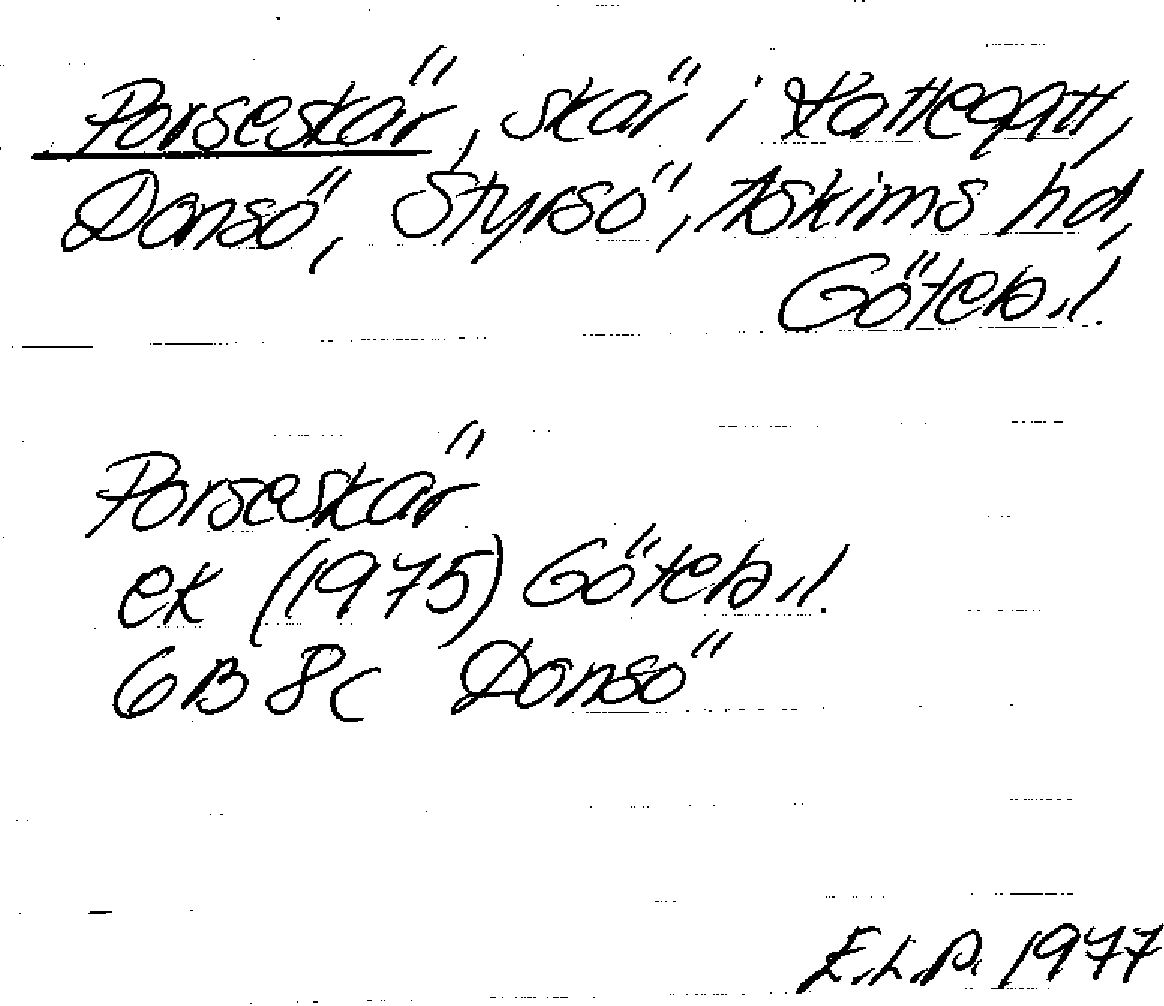 Porseskär, skär i Kattegatt,
Donsö, Styrsö, Askims hd,
Göteb. l.
Porseskär
ek (1975) Göteb. l.
6B 8c Donsö
E.L.P. 1977